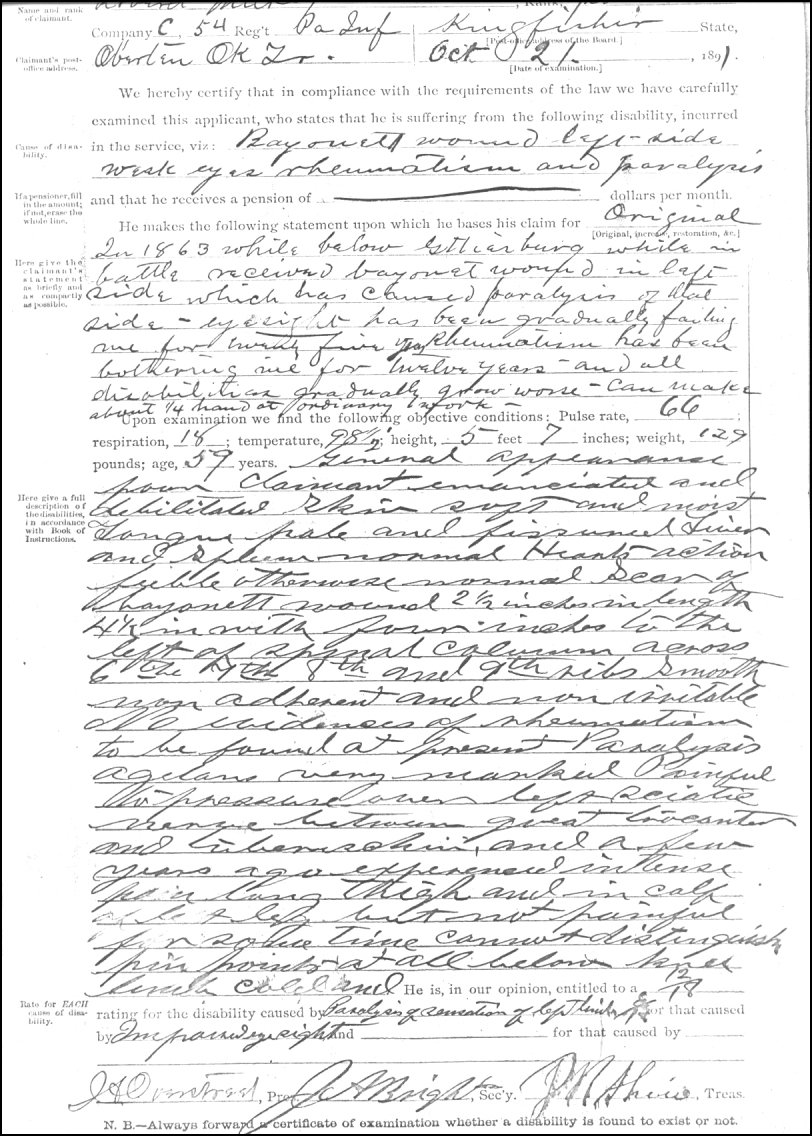 Name and rank
of claimant.
Company C, 54 Reg't Pa Inf Kingfisher State,
[Post-office address of the Board.]
Claimant's post-
office address.
Oberlen OK Tr. Oct 21. , 1891.
[Date of examination.]
We hereby certify that in compliance with the requirements of the law we have carefully
examined this applicant, who states that he is suffering from the following disability, incurred
Cause of disa-
bility.
in the service, viz: Bayonett wound left side
weak eyes rheumatism and paralysis
If a pensioner, fill
in the amount;
if not, erase the
whole line.
and that he receives a pension of dollars per month.
He makes the following statement upon which he bases his claim for Original
[Original, increase, restoration, &c.]
Here give the
claimant's
statement
as briefly and
as compactly
as possible.
In 1863 while below while in
battle received bayonet wound in left
side which has caused paralysis of that
side - eyesight has been gradually failing
me for twenty five yrs Rheumatism has been
bothering me for twelve years - and all
disabilities gradually grow worse - Can make
about 1/4 hand at ordinary work -
Upon examination we find the following objective conditions: Pulse rate, 66 ;
respiration, 18 ; temperature, 98 1/2 ; height, 5 feet 7 inches; weight, 129
pounds; age, 59 years. General appearance
Here give a full
description of
the disabilities,
in accordance
with Book of
Instructions.
poor Claimant emanciated and
debilitated Skin soft and moist
Tongue pale and fissured Liver
and Spleen normal Hearts action
feeble otherwise normal Scar of
bayonett wound 2 1/2 inches in length
4 1/2 in with four inches to the
left of spinal column across
6th 7th 8th and 9th ribs smooth
non adherent and non irritable
No evidences of rheumatism
to be found at present Paralysis
very marked Painful
to pressure over left sciatic
nerve between great trocanter
and and a few
years ago experienced intense
pain along thigh and in calf
of left leg but not painful
for some time cannot distinguish
pin points at all below knee
limb cold and He is, in our opinion, entitled to a 12/18
Rate for EACH
cause of disa-
bility.
rating for the disability caused by Paralysis of sensation of left limb for that caused
by Impaired eyesight and for that caused by
J A Overstreet, Pres. J C Wright, Sec'y. , Treas.
N. B.—Always forward a certificate of examination whether a disability is found to exist or not.